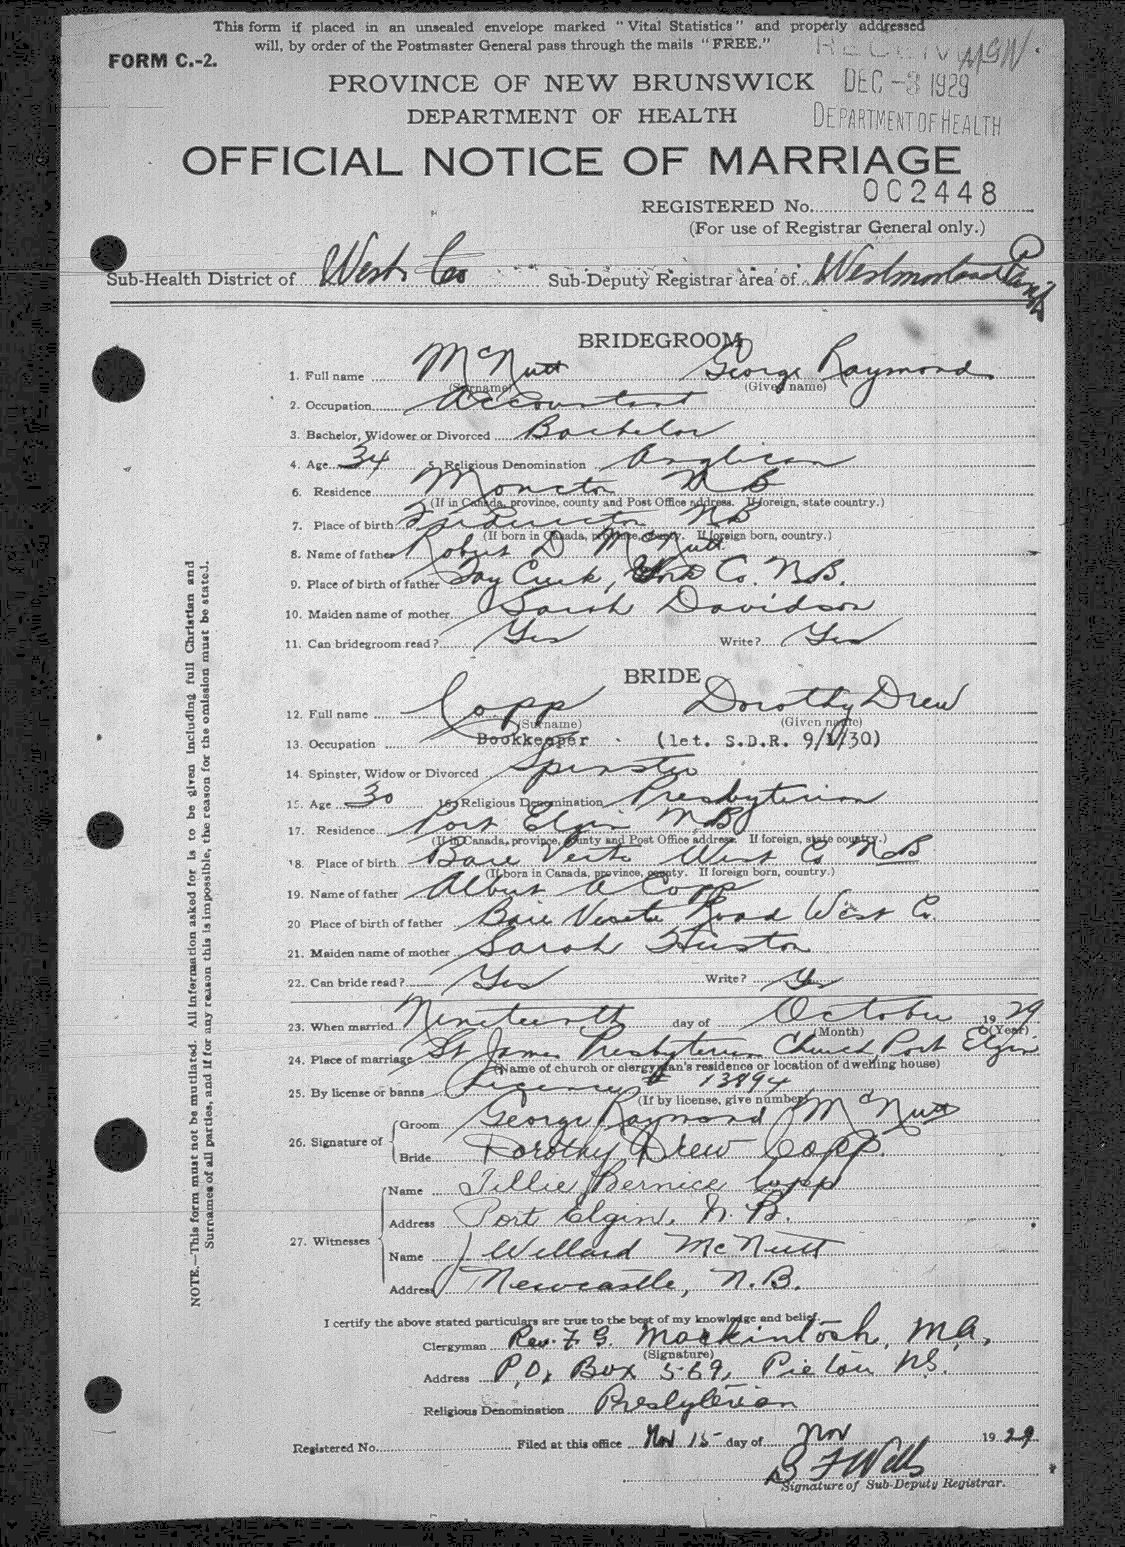 This form if placed in an unsealed envelope marked "Vital Statistics" and properly addressed
will, by order of the Postmaster General pass through the mails "FREE."
FORM C.-2.
PROVINCE OF NEW BRUNSWICK
DEC -3 1929
DEPARTMENT OF HEALTH
DEPARTMENT OF HEALTH
OFFICIAL NOTICE OF MARRIAGE
REGISTERED No. 002448
(For use of Registrar General only.)
Sub-Health District of West. Co Sub-Deputy Registrar area of Westmorland Parish
BRIDEGROOM
1. Full name McNutt George Raymond
(Surname) (Given name)
2. Occupation Accountant
3. Bachelor, Widower or Divorced Bachelor
4. Age 34 5. Religious Denomination Anglican
6. Residence Moncton N B
(If in Canada, province, county and Post Office address. If foreign, state country.)
7. Place of birth Fredericton N B
(If born in Canada, province, county. If foreign born, country.)
8. Name of father Robert D McNutt
9. Place of birth of father Tay Creek, York Co. N.B.
10. Maiden name of mother Sarah Davidson
11. Can bridegroom read? Yes Write? Yes
BRIDE
12. Full name Copp Dorothy Drew
(Surname) (Given name)
13. Occupation Bookkeeper (let. S.D.R. 9/1/30)
14. Spinster, Widow or Divorced Spinster
15. Age 30 16. Religious Denomination Presbyterian
17. Residence Port Elgin N.B.
(If in Canada, province, county and Post Office address. If foreign, state country.)
18. Place of birth Baie Verte West Co N B
(If born in Canada, province, county. If foreign born, country.)
19. Name of father Albert A Copp
20 Place of birth of father Baie Verte Road West Co.
21. Maiden name of mother Sarah Huston
22. Can bride read? Yes Write? Yes
23. When married Nineteenth day of October 1929
(Month) (Year)
24. Place of marriage St James Presbyterian Church Port Elgin
(Name of church or clergyman's residence or location of dwelling house)
25. By license or banns Licence # 13894
(If by license, give number)
26. Signature of Groom George Raymond McNutt
Bride Dorothy Drew Copp.
27. Witnesses Name Tillie Bernice Copp
Address Port Elgin, N. B.
Name J Willard McNutt
Address Newcastle, N.B.
I certify the above stated particulars are true to the best of my knowledge and belief.
Clergyman Rev. F. G. Mackintosh, M.A.
(Signature)
Address P.O. Box 569, Pictou N.S.
Religious Denomination Presbyterian
Registered No. Filed at this office Nov 15 day of Nov 1929
B F Wells
Signature of Sub-Deputy Registrar.
NOTE.—This form must not be mutilated. All information asked for is to be given including full Christian and
Surnames of all parties, and if for any reason this is impossible, the reason for the omission must be stated.